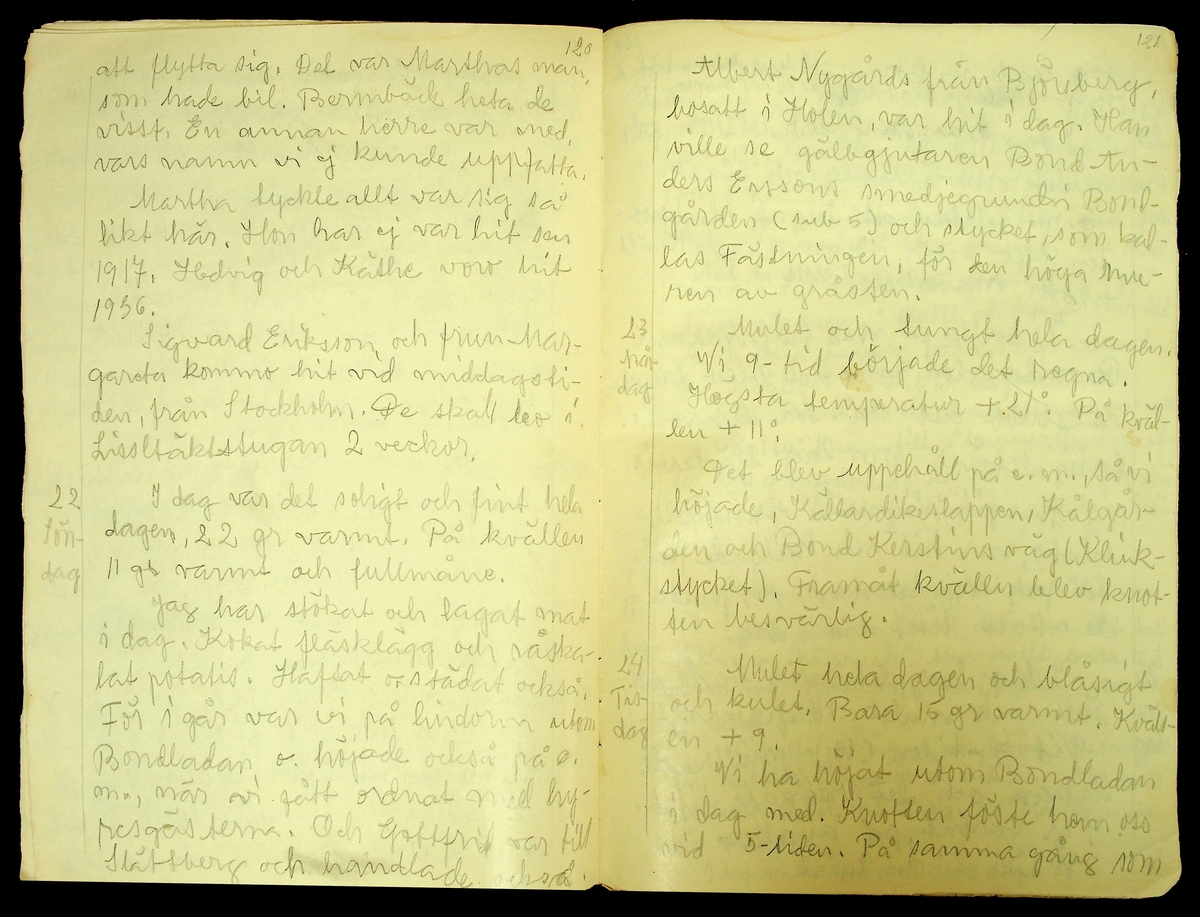 120
att flytta sig. Det var Marthas man,
som hade bil. Bermbäck heta de
visst. En annan herre var med,
vars namn vi ej kunde uppfatta.
Martha tyckte allt var sig så
likt här. Hon har ej var hit sen
1917. Hedvig och Käthe voro hit
1936.
Sigvard Eriksson, och frun Mar-
gareta kommo hit vid middagsti-
den, från Stockholm. De skall leo i
Lissltäktstugan 2 veckor.
22
Sön-
dag
I dag var det soligt och fint hela
dagen, 22 gr varmt. På kvällen
11 gr varmt och fullmåne.
Jag har stökat och lagat mat
i dag. Kokat fläsklägg och råska-
lat potatis. Haft at o. städat också.
För i går var vi på lindorna utom
Bondladan o. höjade också på e.
m., när vi fått ordnat med hy-
resgästerna. Och Gottfrid var till
Slättberg och handlade också.
121
Albert Nygårds från Björberg,
bosatt i Holen, var hit i dag. Han
ville se gälbgjutaren Bond An-
ders Erssons smedjegrund i Bond-
gården (sub 5) och stycket, som kal-
las Fästningen, för den höga mu-
ren av gråsten.
23
Mån-
dag
Mulet och tungt hela dagen.
Vi 9-tid började det regna.
Högsta temperatur + 21°. På kväl-
len + 11°.
Det blev uppehåll på e. m., så vi
höjade, Källardikeslappen, Kålgår-
den och Bond Kerstins väg (Klink-
stycket). Framåt kvällen blev knot-
ten besvärlig.
24
Tis-
dag
Mulet hela dagen och blåsigt
och kulet. Bara 15 gr varmt. Kväll-
en + 9.
Vi ha höjat utom Bondladan
i dag med. Knotten föste hem oss
vid 5-tiden. På samma gång som